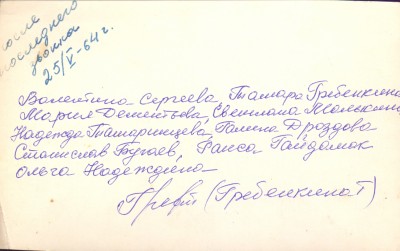 после
последнего
звонка
25/V-64 г.
Валентина Сергеева, Тамара Гребенкина
Мария Дементьева, Светлана
Надежда Татаринцева, Галина Дроздова
Станислав Бугаев, Раиса Гайдамак
Ольга Надеждина
(Гребенкина Т)